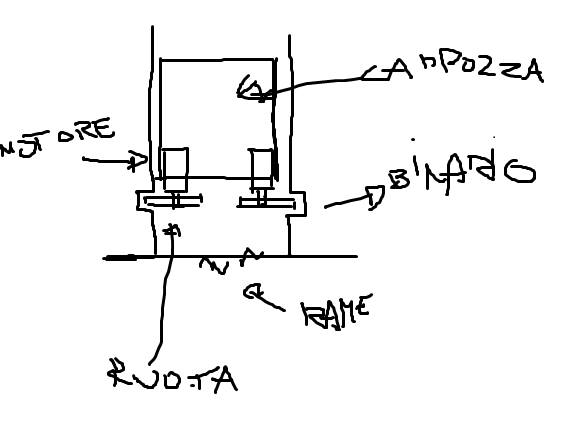 CAMPOZZA
MOTORE
BINARIO
RAME
RUOTA